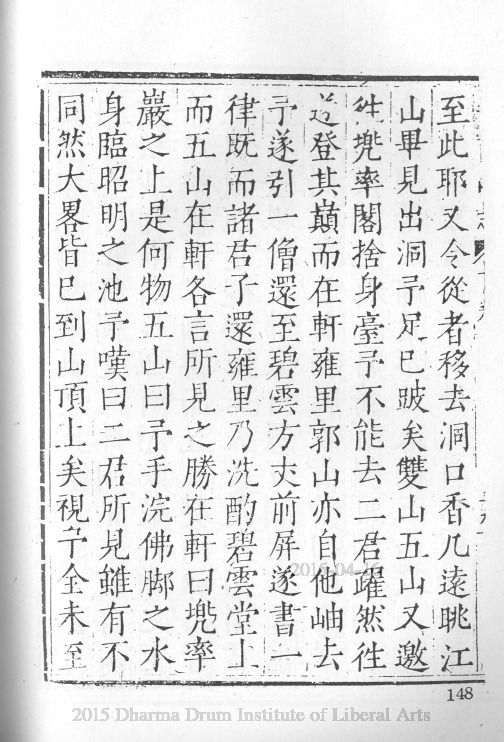 至此耶又令從者移去洞口香几遠眺江
山畢見出洞予足已跛矣雙山五山又邀
徃兠率閣捨身臺予不能去二君躍然徃
遂登其巔而在軒雍里郭山亦自他岫去
予遂引一僧還至碧雲方丈前屏遂書一
律既而諸君子還雍里乃洗酌碧雲堂上
而五山在軒各言所見之勝在軒曰兠率
巖之上是何物五山曰予手浣佛脚之水
身臨昭明之池予嘆曰二君所見雖有不
同然大畧皆已到山頂上矣視予全未至
148
2015-04-16
2015 Dharma Drum Institute of Liberal Arts